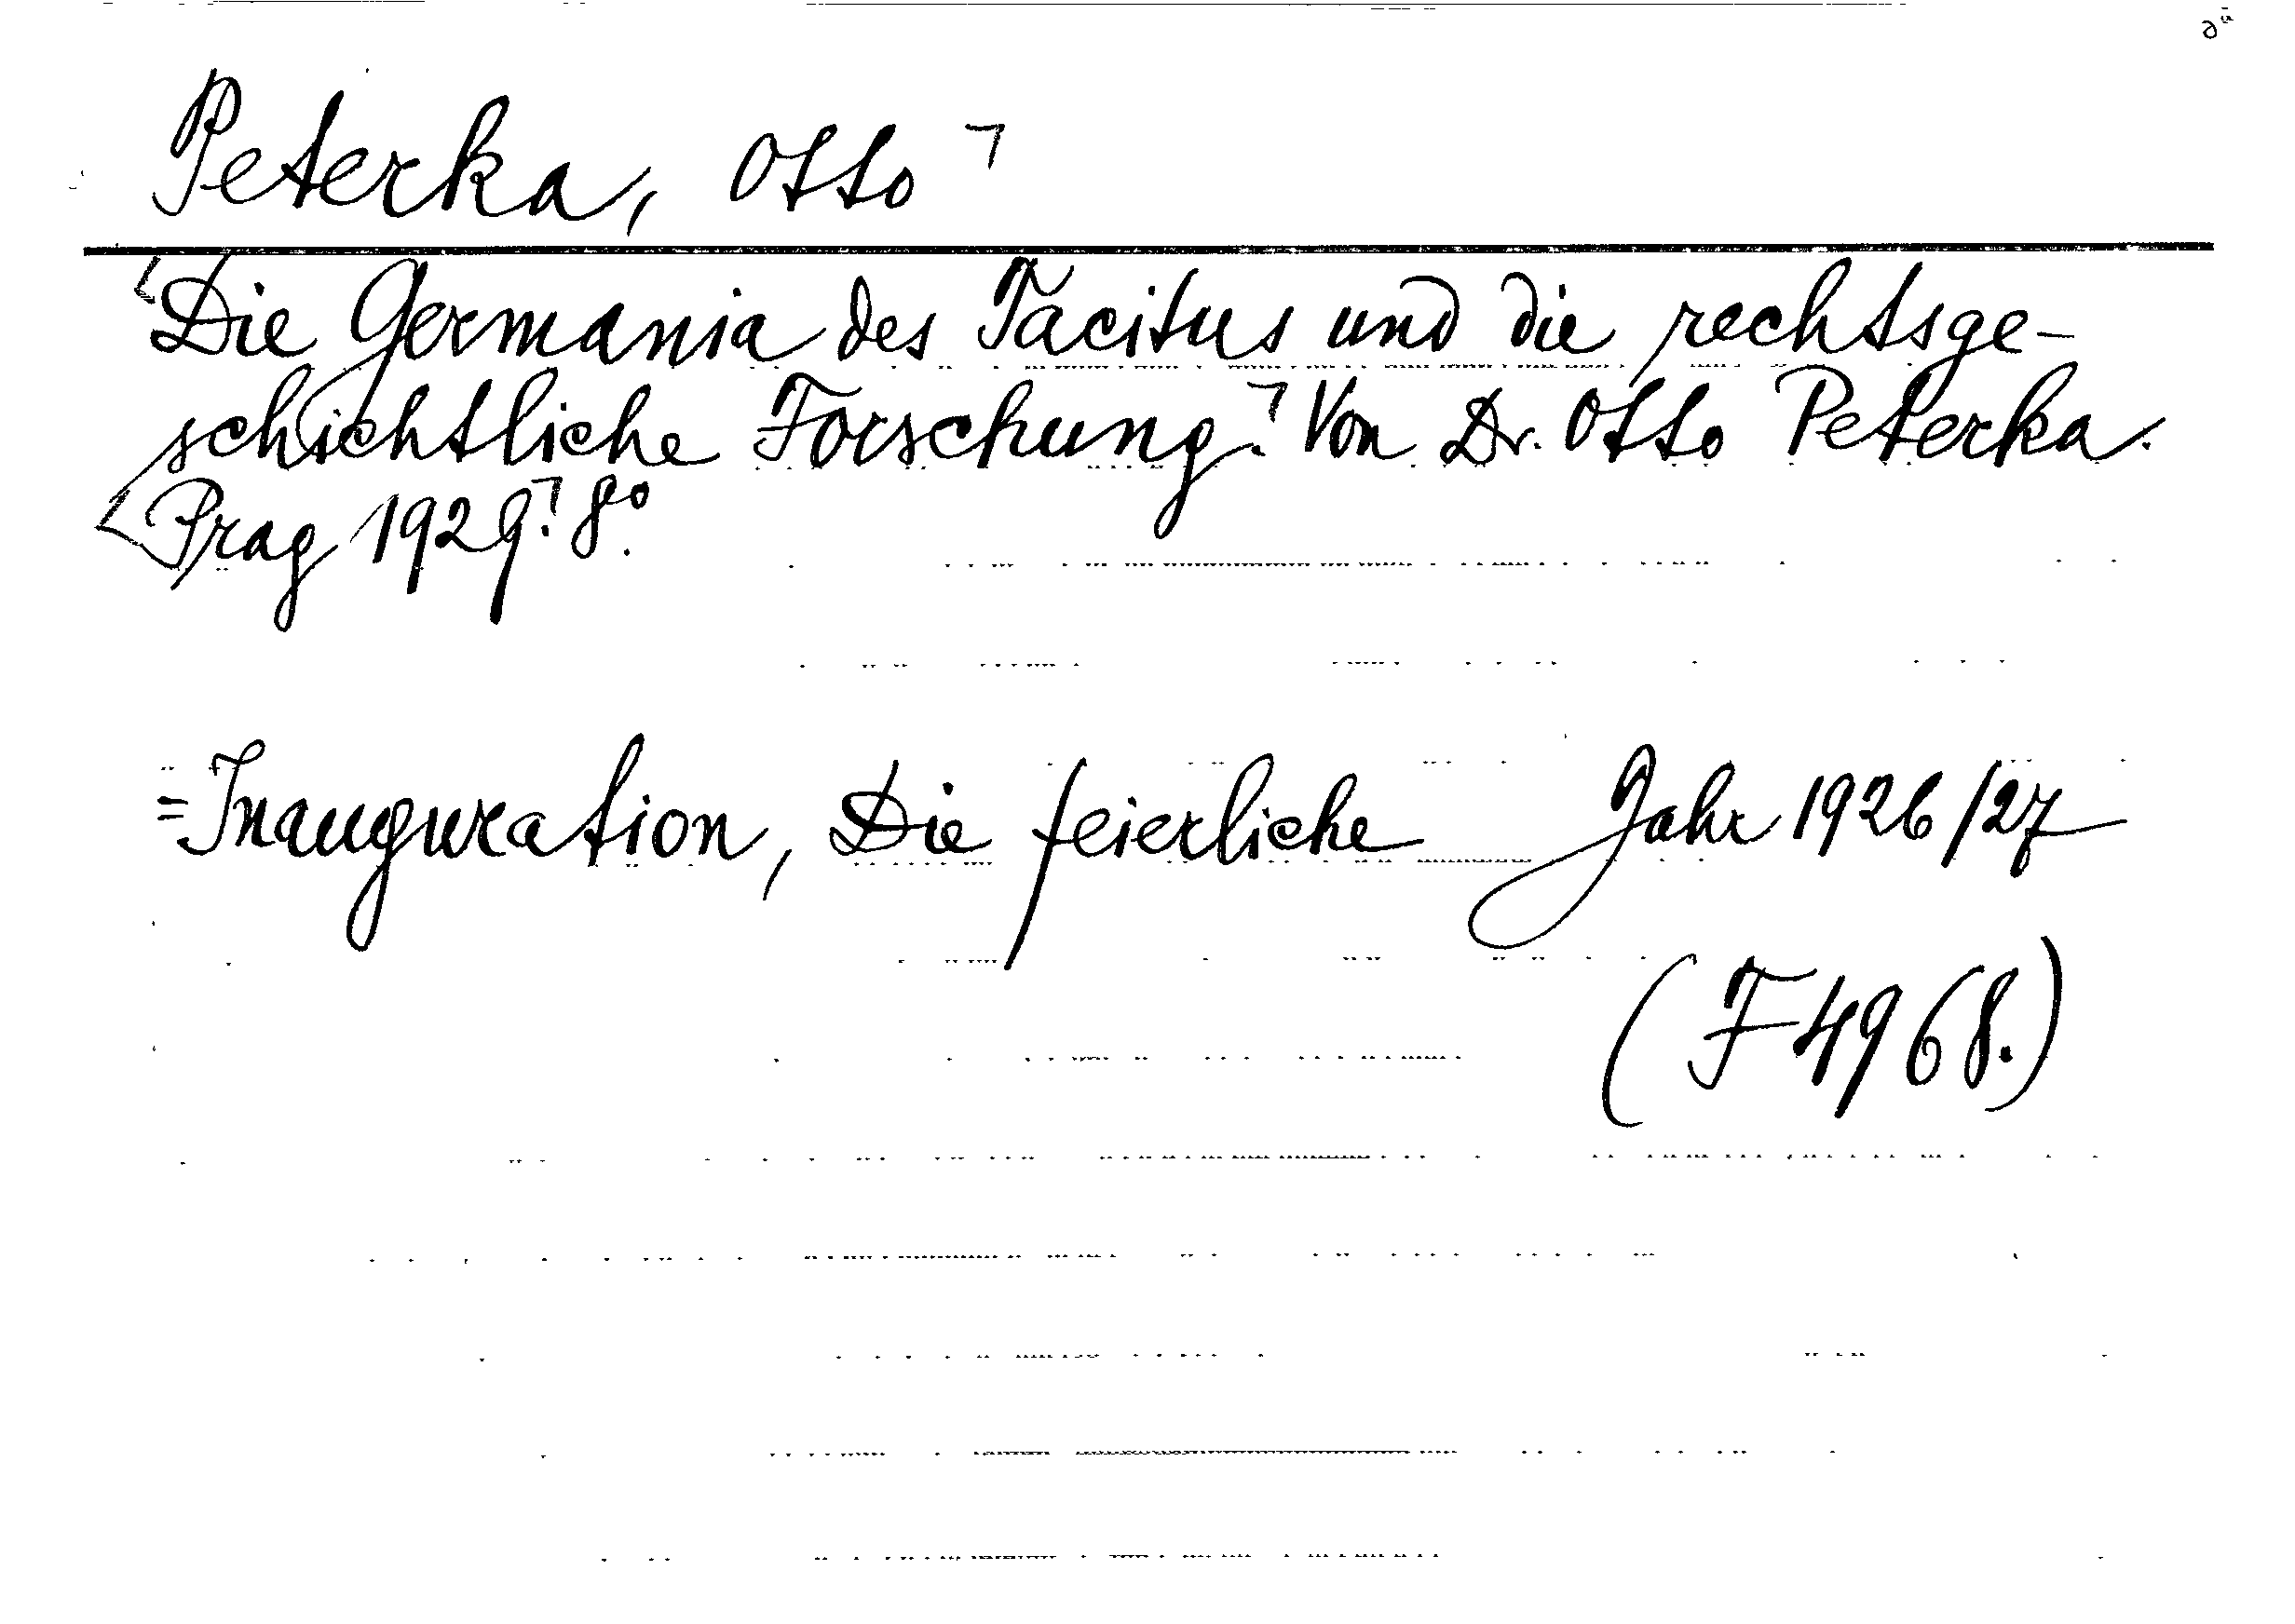 Peterka, Otto
Die Germania des Tacitus und die rechtsge-
schichtliche Forschung. Von Dr. Otto Peterka.
Prag 1929. 8°.
=Inauguration, Die feierliche Jahr 1926/27
(F 4968.)